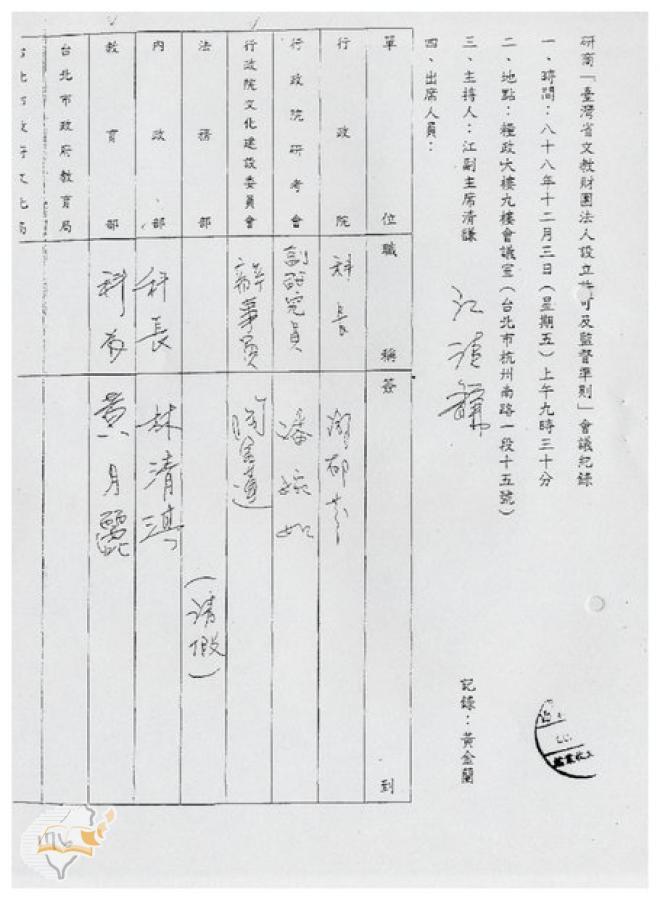 研商「臺灣省文教財團法人設立許可及監督準則」會議紀錄
一、時間：八十八年十二月三日（星期五）上午九時三十分
二、地點：極政大樓九樓會議室（台北市杭州南路一段十五號）
三、主持人：江副主席清馦 江清馦 記錄：黃金蘭
四、出席人員：
單位 職稱 簽到
行政院 科長
行政院研考會 副研究員 潘婉如
行政院文化建設委員會 辦事員
法務部 （請假）
內政部 科長 林清淇
教育部 科員 黃月麗
台北市政府教育局
台北市政府文化局
176